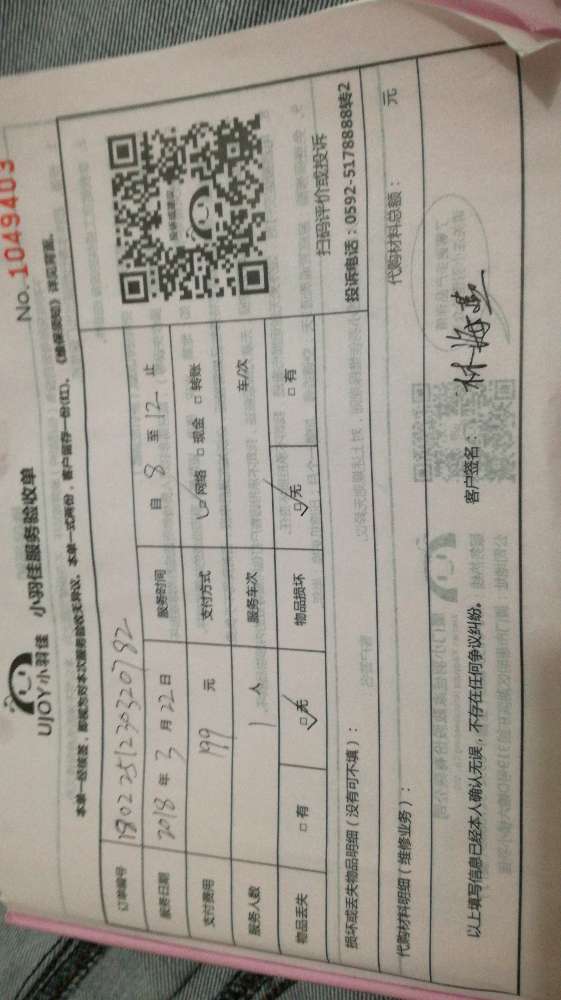 No. 1049403
UJOY小羽佳 小羽佳服务验收单
本单一经接签，即视为对本次服务验收无异议。本单一式两份，客户留存一份(红)。《维保须知》详见背面。
订单编号 1802251230320792
服务日期 2018 年 3 月 22 日 服务时间 自 8 至 12 止
支付费用 199 元 支付方式 ☑网络 □现金 □转账
服务人数 1 人 服务车次 车/次
物品丢失 □有 ☑无 物品损坏 ☑无 □有
扫码评价或投诉
投诉电话：0592-5178888转2
损坏或丢失物品明细（没有可不填）：
代购材料明细（维修业务）： 代购材料总额： 元
以上填写信息已经本人确认无误，不存在任何争议纠纷。 客户签名： 林海燕